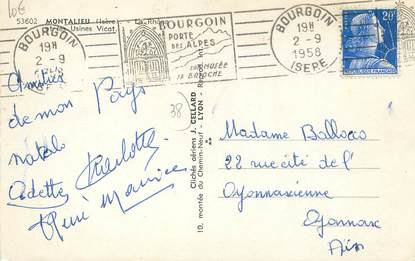 10€
53602 MONTALIEU (Isère) - Le Rhô
Usines Vicat.
BOURGOIN
19H
2 - 9
BOURGOIN
PORTE
DES ALPES
SON MUSÉE
SA BRIOCHE
BOURGOIN
19H
2 - 9
1958
ISERE
20F
REPUBLIQUE FRANÇAISE
38
Clichés aériens J. CELLARD
10, montée du Chemin-Neuf - LYON
de mon Pays
natal
Odette Charlotte
René Maurice
Madame Ballocco
22 rue cité de l'
Oyonnaxienne
Oyonnax
Ain